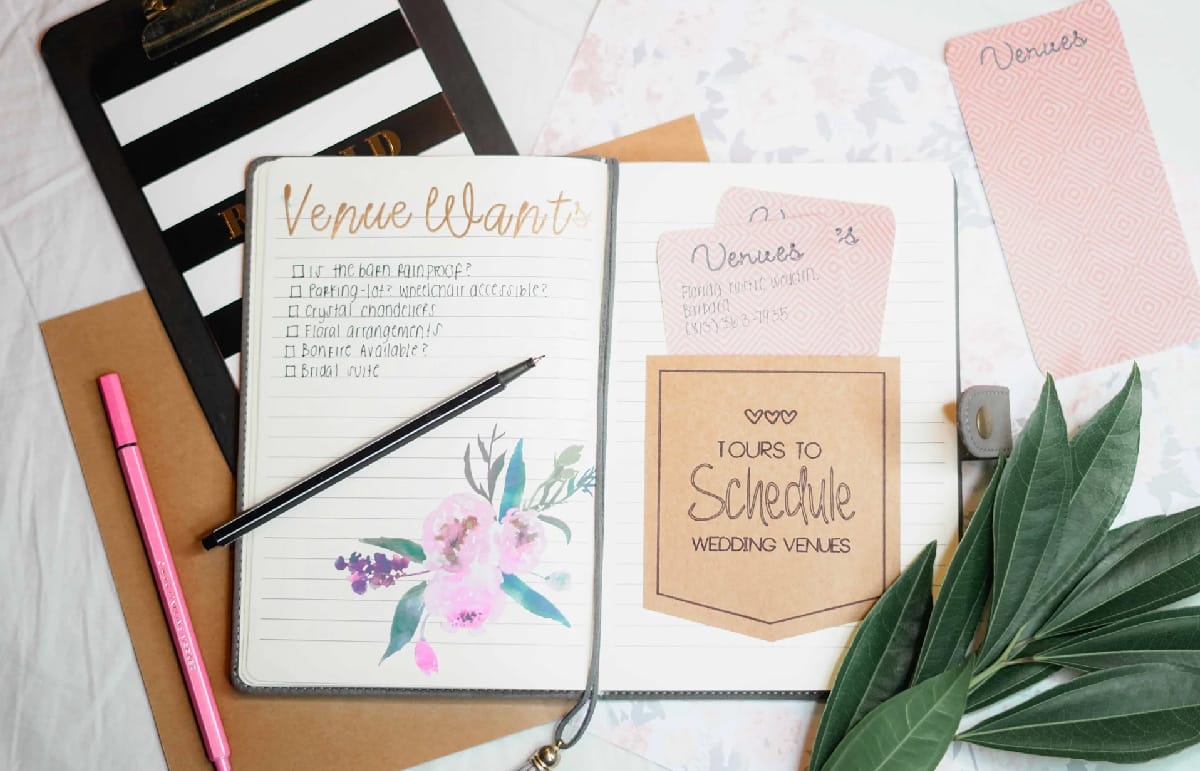 Venue Wants
Is the barn rainproof?
Parking-lot? Wheelchair accessible?
Crystal chandeliers
Floral arrangements
Bonfire Available?
Bridal suite
Venues
Venues 's
Barbara
TOURS TO
Schedule
WEDDING VENUES